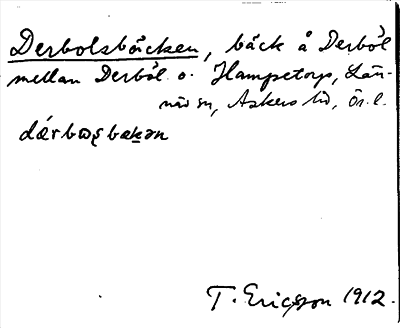 Derbolsbäcken, bäck å Derbol
mellan Derbol o. Hampetorp, Län-
näs sn, Askers hd, Ör. l.
T. Ericsson 1912.